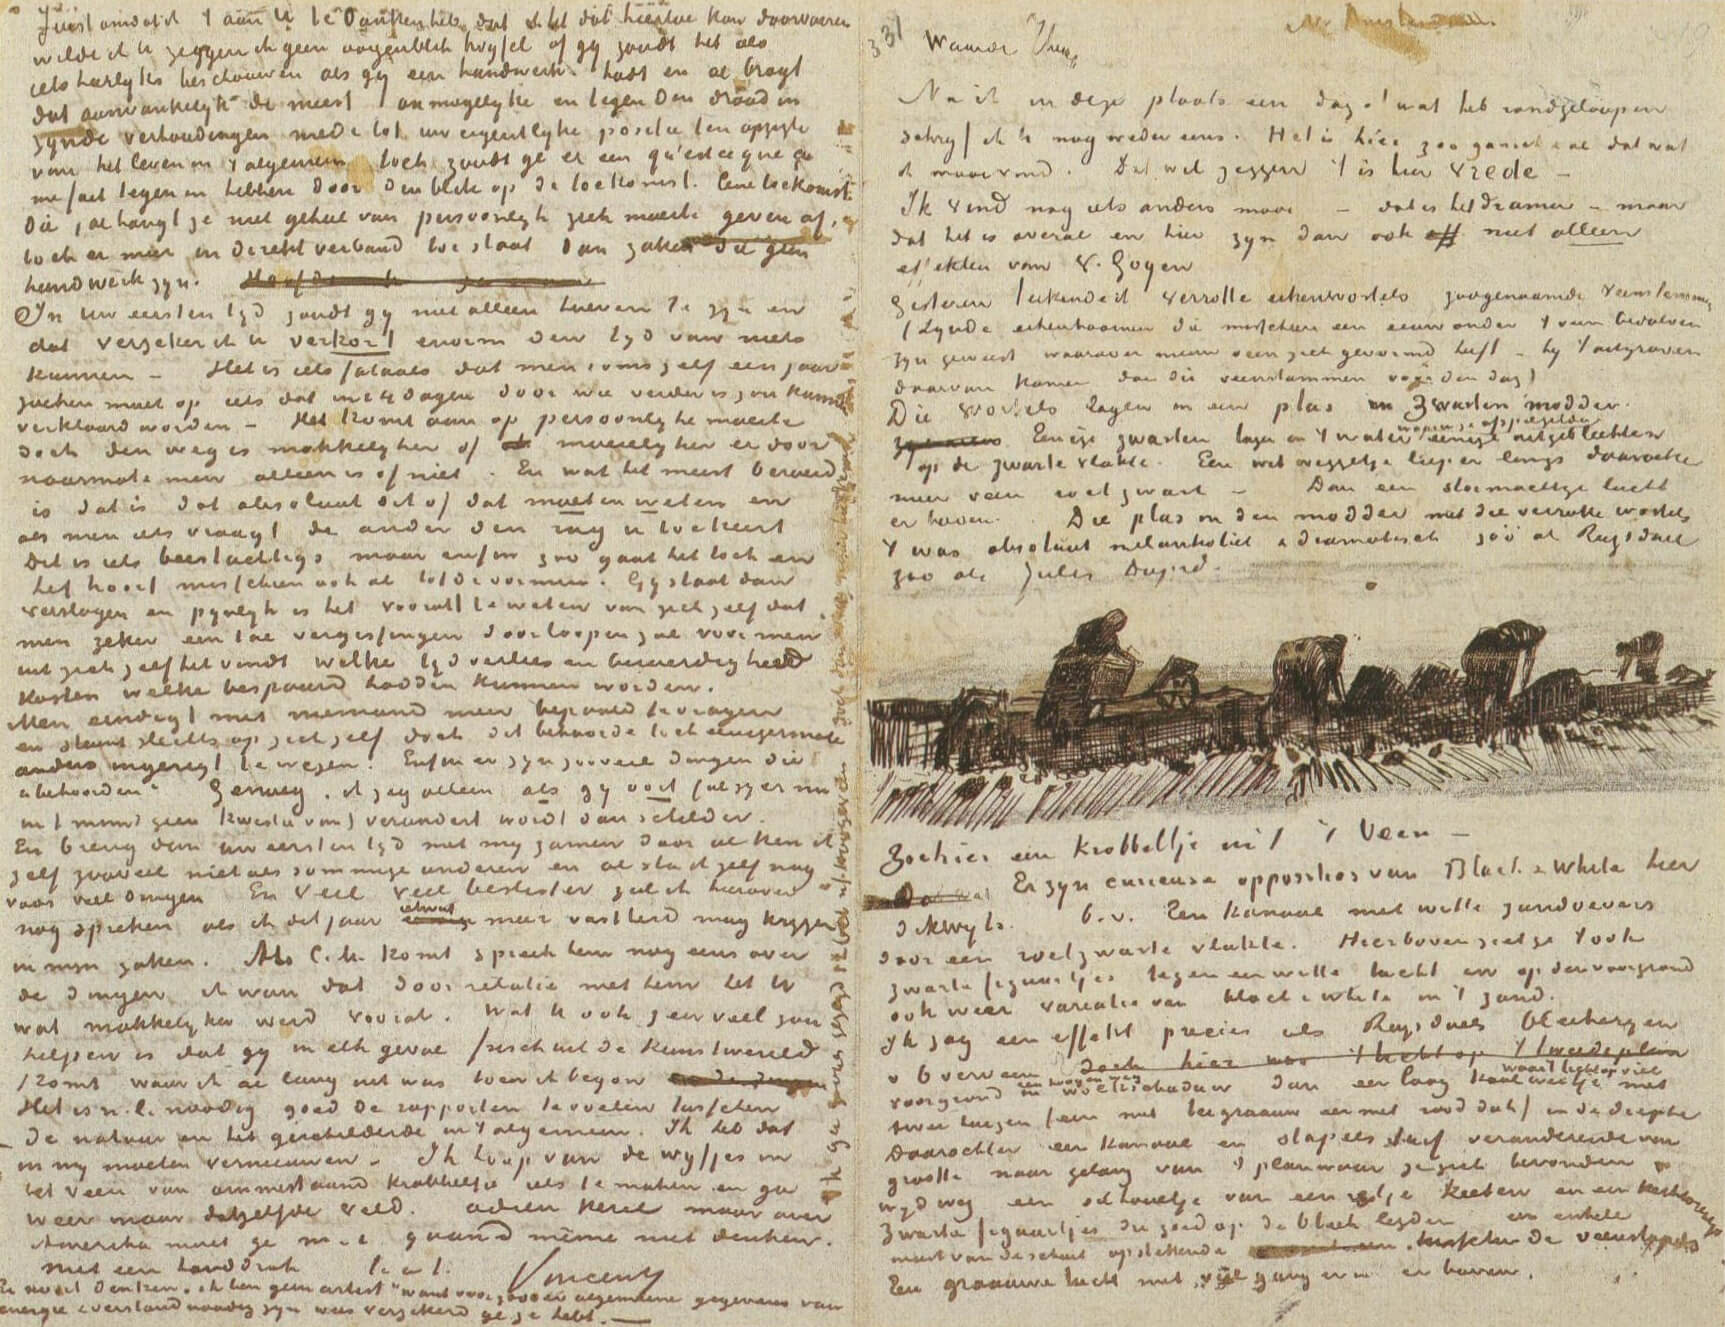 Juist omdat ik 't aan U te danken heb dat ik het dat hiertoe kon doorvoeren
wilde ik U zeggen ik geen oogenblik twyfel of gy zoudt het als
iets heerlyks beschouwen als gy een handwerk hadt en al bragt
dat aanvankelyk de meest onmogelyke en tegen den draad in
zynde verhoudingen mede tot uw eigentlyke positie ten opzigte
van het leven in 't algemeen toch zoudt ge er een qu'est ce que ça
me fait tegen in hebben door den blik op de toekomst. Eene toekomst
die, al hangt ze niet geheel van persoonlyk zich moeite geven af,
toch er meer in direkt verband toe staat dan zaken die geen
handwerk zyn.
In uw eersten tyd zoudt gy niet alleen hoeven te zyn en
dat verzeker ik U verkort enorm den tyd van niets
kunnen – Het is iets fataals dat men soms zelf een jaar
zoeken moet op iets dat in 14 dagen door wie verder is zou kunnen
verklaard worden – Het komt aan op persoonlyke moeite
doch den weg is makkelyker of moeielyker er door
naarmate men alleen is of niet. En wat het meest beroerd
is dat is dat absoluut dit of dat moeten weten en
als men iets vraagt de ander den rug u toekeert
Dit is iets beestachtigs maar enfin zoo gaat het toch en
het hoort misschien ook al tot de vormen. Gy staat dan
verslagen en pynlyk is het vooral te weten van zich zelf dat
men zeker een tal vergissingen doorloopen zal voor men
uit zich zelf het vindt welke tydverlies en beroerdigheid
kosten welke bespaard hadden kunnen worden.
Men eindigt met niemand meer bepaald te vragen
en steunt slechts op zich zelf doch dit behoorde toch eenigermate
anders ingerigt te wezen. Enfin er zyn zooveel dingen die
"behoorden" Genoeg, ik zeg alleen als gy ooit (al is er nu
in 't minst geen kwestie van) verandert wordt dan schilder.
En breng dan uw eersten tyd met my zamen daar al ken ik
zelf zooveel niet als sommige anderen en al sta ik zelf nog
voor veel dingen En veel veel beslister zal ik hierover
nog spreken als ik dit jaar ietwat meer vastheid mag krygen
in myn zaken. Als C.M. komt spreek hem nog eens over
de dingen ik wou dat door relatie met hem het U
wat makkelyker werd vooral. Wat U ook zeer veel zou
helpen is dat gy in elk geval frisch uit de kunstwereld
komt waar ik al lang uit was toen ik begon
Het is n.l. noodig goed de rapporten te voelen tusschen
de natuur en het geschilderde in 't algemeen. Ik heb dat
in my moeten vernieuwen – Ik hoop van de wyfjes in
het veen van ommestaand krabbeltje iets te maken en ga
weer maar dezelfde veld. adieu kerel maar over
Amerika moet ge m.i. quand même niet denken.
met een handdruk t. à t. Vincent
En nooit denken, ik ben geen artist" want voor zoover algemeene gegevens van
energie & verstand noodig zyn wees verzekerd ge ze hebt. —
N. Amsterdam.
331 Waarde Theo,
Na ik in deze plaats een dag of wat heb rondgeloopen
schryf ik U nog weder eens. Het is hier zoo gansch & al dat wat
ik mooi vind. Dat wil zeggen 't is hier vrede –
Ik vind nog iets anders mooi – dat is het drama – maar
dat het is overal en hier zyn dan ook niet alleen
effekten van v. Goyen
Gisteren teekende ik verrotte eikenwortels zoogenaamde veenstammen
(zynde eikenboomen die misschien een eeuw onder 't veen bedolven
zyn geweest waarover nieuw veen zich gevormd heeft – by 't uitgraven
daarvan komen dan die veenstammen voor den dag)
Die wortels lagen in een plas in zwarten modder.
Eenige zwarten lagen in 't water waarin ze afspiegelden eenige uitgebleekten
op de zwarte vlakte. Een wit weggetje liep er langs daarachter
meer veen roetzwart – Dan een stormachtige lucht
er boven. Die plas in den modder met die verrotte wortels
't was absoluut melankoliek & dramatisch zóó als Ruysdael
zoo als Jules Dupré.
Ziehier een krabbeltje uit 't Veen –
Er zyn curieuse oppositie's van Black & White hier
dikwyls. b.v. Een kanaal met witte zandoevers
door een roetzwarte vlakte. Hierboven ziet ge 't ook
zwarte figuurtjes tegen een witte lucht en op den voorgrond
ook weer variatie van black & white in 't zand.
Ik zag een effekt precies als Ruysdaels bleekeryen
v. Overveen doch hier was 't licht op 't tweede plan
voorgrond een hooge weg in wolkschaduw dan een laag kaal weitje waar 't licht op viel met
twee huizen (een met leigraauw een met rood dak) in de diepte
Daarachter een kanaal en stapels turf veranderende van
grootte naar gelang van 't plan waar ze zich bevonden
wyd weg een silhouetje van een rytje keeten en een kerktorentje
zwarte figuurtjes die goed op de bleek leyden een enkele
mast van de schuit opstekende tusschen de veenstapels
Een graauwe lucht met veel gang er in er boven.